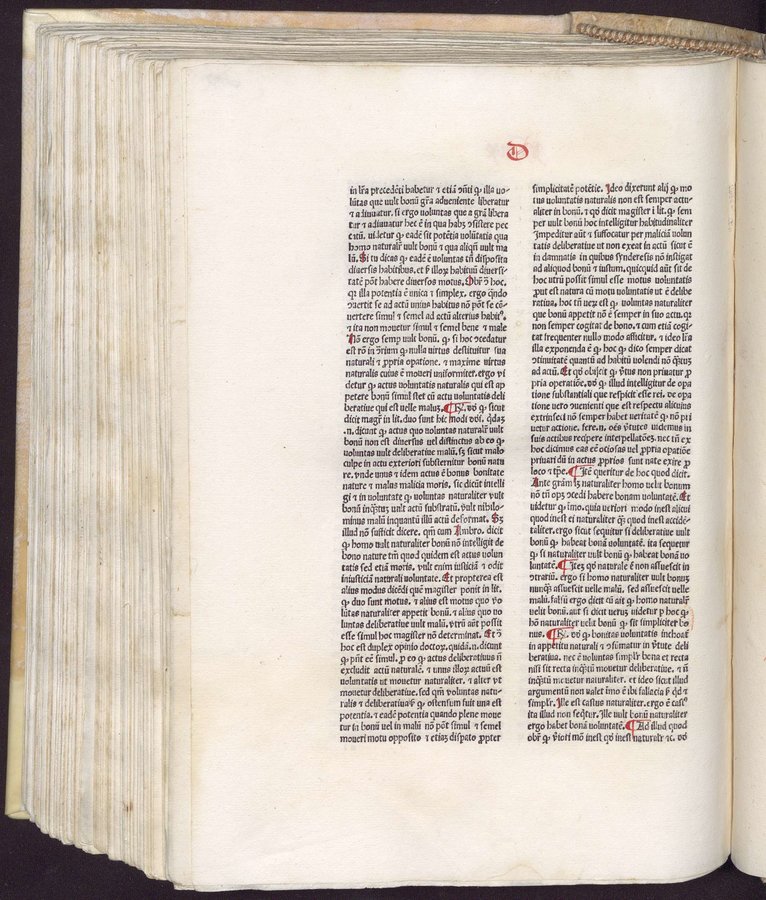 D
in lr̄a precedēti habetur ⁊ etiā ꝯn̄ti ꝙ illa uo-
lūtas que uult bonū gr̄a adueniente liberatur
⁊ adiuuatur. si ergo voluntas que a grā libera
tur ⁊ adiuuatur hec ē in qua habꝫ ꝯsistere pec
cctū. videtur ꝙ eadē sit potētia volūtatis qua
homo naturalr̄ uult bonū ⁊ qua aliqn̄ uult ma
lū. Si tu dicas ꝙ eadē ē voluntas tn̄ disposita
diuersis habitibus. et ꝑ illoꝝ habituū diuersi-
tatē pōt habere diuersos motus. Obr̄ ꝯ hoc.
qꝛ illa potentia ē unica ⁊ simplex. ergo qn̄do
ꝯuertit se ad actū unius habitus nō pōt se cō-
uertere simul ⁊ semel ad actū alterius habitꝰ.
⁊ ita non mouetur simul ⁊ semel bene ⁊ male
Nō ergo semꝑ uult bonū. ꝙ si hoc ꝯcedatur
est rō in ꝯrium ꝙ nulla virtus destituitur sua
naturali ⁊ ꝓpria oꝑatione. ⁊ maxime virtus
naturalis cuius ē moueri uniformiter. ergo vi
detur ꝙ actus voluntatis naturalis qui est ap
petere bonū simul stet cū actu voluntatis deli
beratiue qui est uelle malum. ¶ R̄. dō ꝙ sicut
dicit magr̄ in lit. duo sunt hic modi dōi. qdaꝫ
.n. dicunt ꝙ actus quo voluntas naturalr̄ uult
bonū non est diuersus uel distinctus ab eo ꝙ
voluntas uult deliberatiue malū. sꝫ sicut malo
culpe in actu exteriori substernitur bonū natu
re. vnde unus ⁊ idem actus ē bonus bonitate
nature ⁊ malus malicia moris. sic dicūt intelli
gi ⁊ in voluntate ꝙ voluntas naturaliter vult
bonū inqꝫtuꝫ uult actū substratū. uult nihilo-
minus malū inquantū illū actū deformat. Sꝫ
illud nō sufficit dicere. qm̄ cum Ambro. dicit
ꝙ homo vult naturaliter bonū nō intelligit de
bono nature tm̄ quod quidem est actus volun
tatis sed etiā moris. vult enim iusticiā ⁊ odit
iniusticiā naturali voluntate. Et propterea est
alius modus dicēdi quē magister ponit in lit.
ꝙ duo sunt motus. ⁊ alius est motus quo vo
lūtas naturaliter appetit bonū. ⁊ alius quo vo
luntas deliberatiue uult malū. vtrū aūt possit
esse simul hoc magister nō determinat. Et ꝯ
hoc est duplex opinio doctoꝝ. quidā.n. dicunt
ꝙ pn̄t eē simul. ꝓ eo ꝙ actus deliberatiuus n̄
excludit actū naturalē. ⁊ unus aliquādo actus est
voluntatis ut mouetur naturaliter. ⁊ aliter vt
mouetur deliberatiue. sed qm̄ voluntas natu-
ralis ⁊ deliberatiua ꝙ ostensum fuit una est
potentia. ⁊ eadē potentia quando plene moue
tur in bonū uel in malū nō pōt simul ⁊ semel
moueri motu opposito ⁊ etiaꝫ disꝑato ꝓpter
simplicitatē potētie. Ideo dixerunt alij ꝙ mo
tus voluntatis naturalis non est semper actu-
aliter in bonū. ⁊ qd̄ dicit magister ī lit. ꝙ sem
per uult bonū hoc intelligitur habitudinaliter
Impeditur aūt ⁊ suffocatur per maliciā volun
tatis deliberatiue ut non exeat in actū sicut ē
in damnatis in quibus synderesis nō instigat
ad aliquod bonū ⁊ iustum. quicquid aūt sit de
hoc utrū possit simul esse motus voluntatis
ꝓut est natura cū motu voluntatis ut ē delibe
ratiua. hoc tn̄ ueꝝ est ꝙ voluntas naturaliter
que bonū appetit nō ē semper in suo actu. qꝛ
non semper cogitat de bono. ⁊ cum etiā cogi-
tat frequenter nullo modo afficitur. ⁊ ideo lr̄a
illa exponenda ē ꝙ hoc ꝙ dico semper dicat
ꝯtinuitatē quantū ad habitū uolendi nō qꝫtuꝫ
ad actū. Et qd̄ obijcit ꝙ v̄tus non priuatur ꝓ
pria oꝑatiōe. dō ꝙ illud intelligitur de oꝑa
tione substantiali que respicit esse rei. de oꝑa
tione uero ꝯuenienti que est respectu alicuius
extrinseci nō semper habet ueritatē ꝙ nō pri
uetur actione. fere.n. oēs v̄tutes uidemus in
suis actibus recipere interpellatōeꝫ. nec tn̄ ex
hoc dicimus eas eē ociosas uel ꝓpria oꝑatiōe
priuari dū in actus ꝓprios sunt nate exire ꝓ
loco ⁊ tꝑe. ¶ Itē queritur de hoc quod dicit.
Ante gram sꝫ naturaliter homo uelit bonum
nō tn̄ oꝑꝫ ꝯcedi habere bonam voluntatē. Et
uidetur ꝙ imo. quia ueriori modo inest alicui
quod inest ei naturaliter qꝫ quod inest accidē-
taliter. ergo sicut sequitur si deliberatiue uult
bonū ꝙ habeat bonā voluntatē. ita sequetur
ꝙ si naturaliter uult bonū ꝙ habeat bonā vo
luntatē. ¶ Iteꝫ qd̄ naturale ē non assuescit in
ꝯtrariū. ergo si homo naturaliter uult bonuꝫ
nunqꝫ assuescit uelle malū. sed assuescit uelle
malū. falsū ergo dicit cū ait ꝙ homo naturalr̄
uelit bonū. aut si dicit veruꝫ videtur ꝑ hoc ꝙ
hn̄ naturaliter uelit bonū ꝙ sit simpliciter bo
nus. ¶ R̄. dō ꝙ bonitas voluntatis inchoat̄
in appetitu naturali ⁊ ꝯsumatur in v̄tute deli
beratiua. nec ē voluntas simplr̄ bona et recta
nisi sit recta inqꝫtū mouetur deliberatiue. ⁊ n̄
inqꝫtū mouetur naturaliter. et ideo sicut illud
argumentū non ualet imo ē ibi fallacia ẜ qd̄ ⁊
simplr̄. Ille est castus naturaliter. ergo ē castꝰ
ita illud non seqtur. Ille uult bonū naturaliter
ergo habet bonā voluntatē. ¶ Ad illud quod
obr̄ ꝙ v̄iori mō inest qd̄ inest naturalr̄ ⁊c. dō